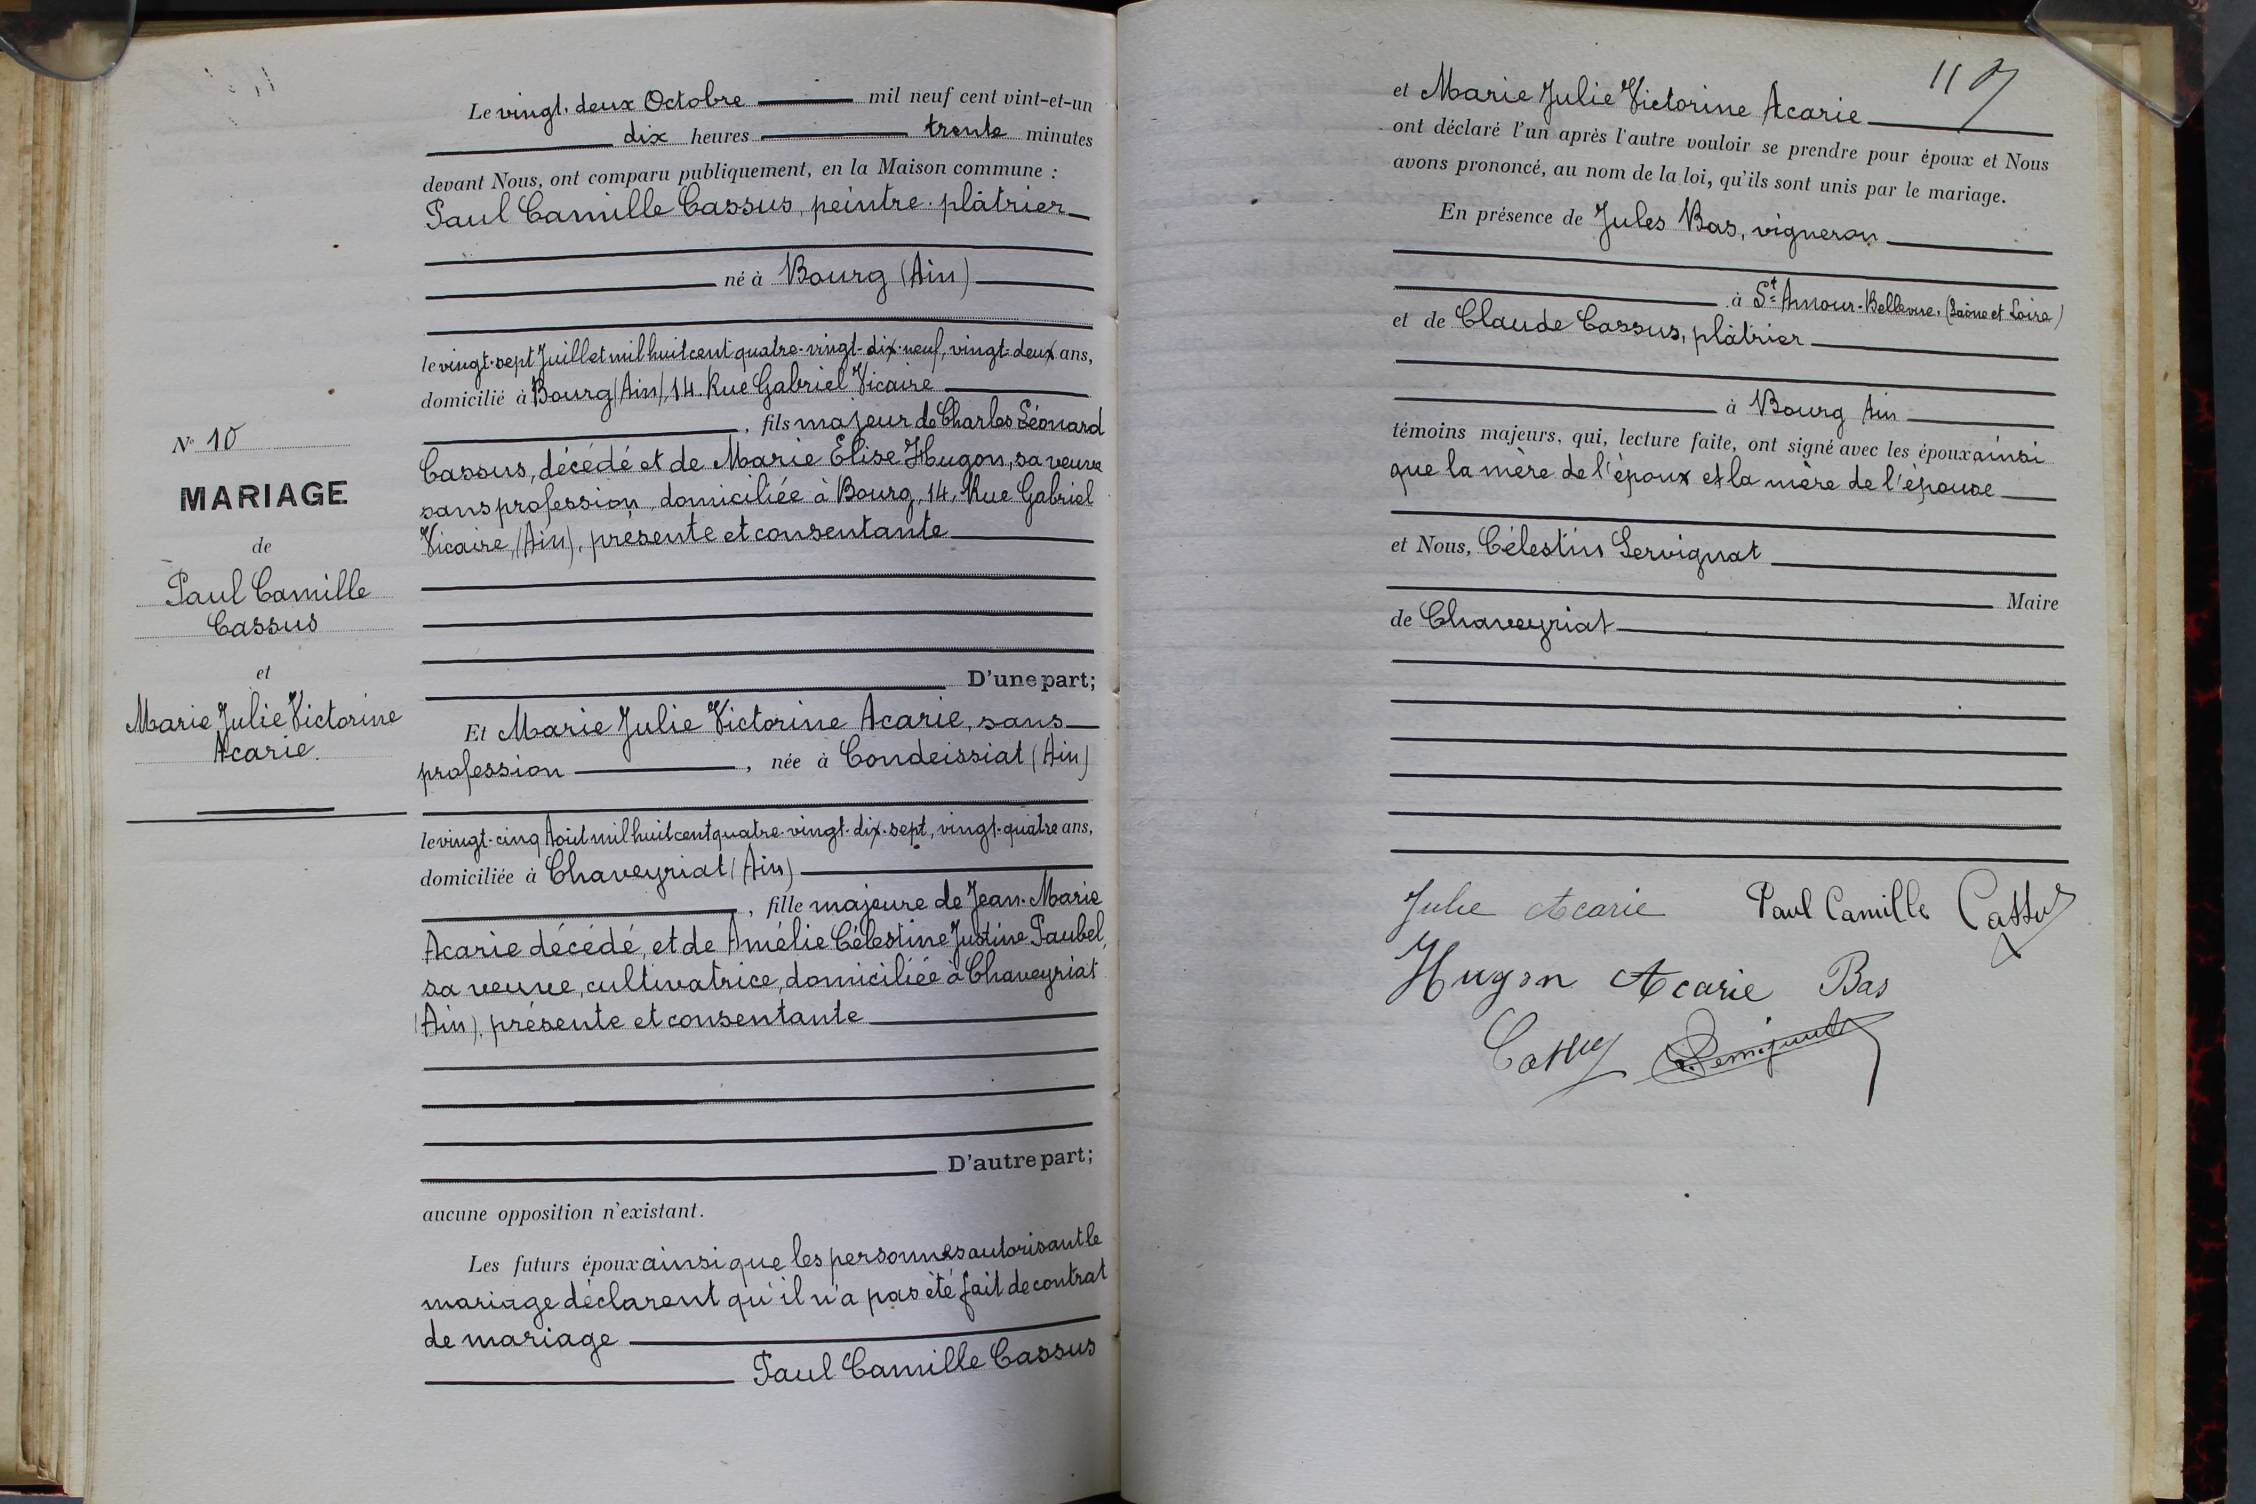 N° 10
MARIAGE
de
Paul Camille
Cassus
et
Marie Julie Victorine
Acarie.
Le vingt-deux Octobre mil neuf cent vint-et-un
dix heures trente minutes
devant Nous, ont comparu publiquement, en la Maison commune :
Paul Camille Cassus, peintre-plâtrier
né à Bourg (Ain)
le vingt-sept Juillet mil huit cent quatre-vingt-dix-neuf, vingt-deux ans,
domicilié à Bourg (Ain), 14. Rue Gabriel Vicaire
, fils majeur de Charles Léonard
Cassus, décédé et de Marie Elise Hugon, sa veuve
sans profession, domiciliée à Bourg, 14, Rue Gabriel
Vicaire, (Ain), présente et consentante
D'une part;
Et Marie Julie Victorine Acarie, sans
profession, née à Condeissiat (Ain)
le vingt-cinq Août mil huit cent quatre-vingt-dix-sept, vingt-quatre ans,
domiciliée à Chaveyriat (Ain)
, fille majeure de Jean-Marie
Acarie décédé, et de Amélie Célestine Justine Paubel,
sa veuve, cultivatrice, domiciliée à Chaveyriat
(Ain), présente et consentante
D'autre part;
aucune opposition n'existant.
Les futurs époux ainsi que les personnes autorisant le
mariage déclarent qu'il n'a pas été fait de contrat
de mariage
Paul Camille Cassus
117
et Marie Julie Victorine Acarie
ont déclaré l'un après l'autre vouloir se prendre pour époux et Nous
avons prononcé, au nom de la loi, qu'ils sont unis par le mariage.
En présence de Jules Bas, vigneron
à St Amour-Bellevue. (Saône et Loire)
et de Claude Cassus, plâtrier
à Bourg Ain
témoins majeurs, qui, lecture faite, ont signé avec les époux ainsi
que la mère de l'époux et la mère de l'épouse
et Nous, Célestin Servignat
Maire
de Chaveyriat
Julie Acarie Paul Camille Cassus
Hugon Acarie Bas
Cassus